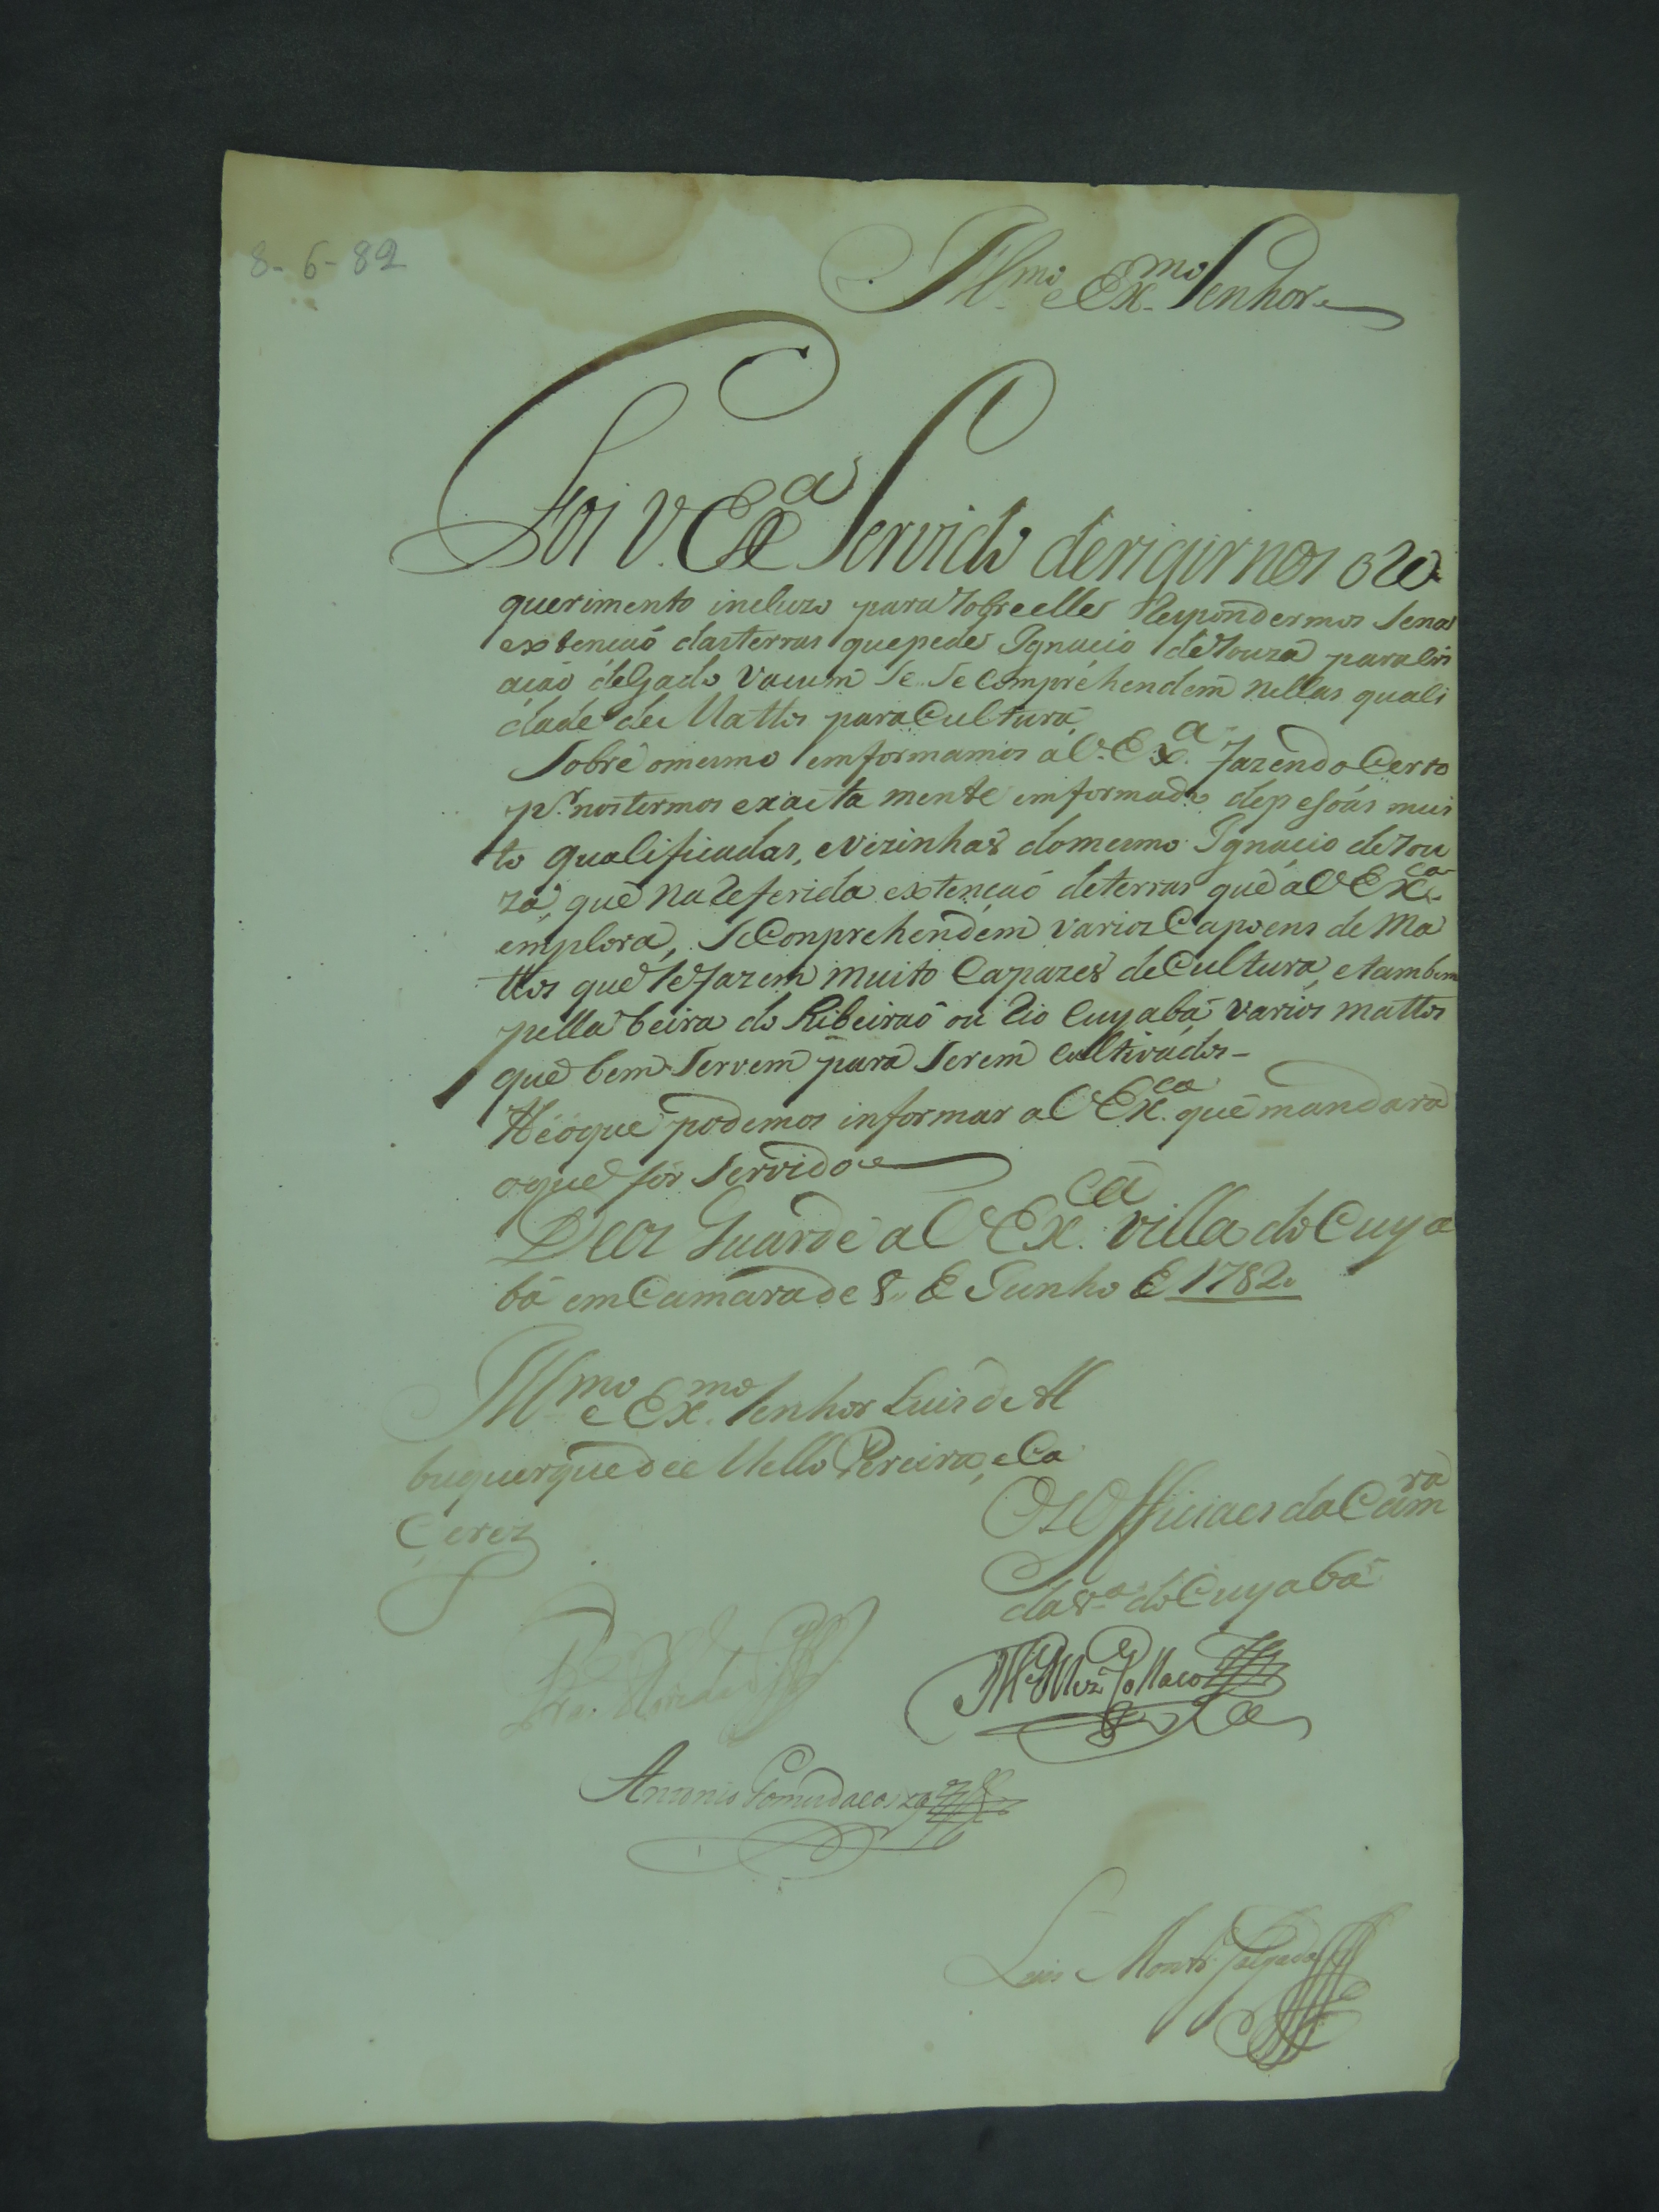 8-6-82
Ill.mo e Ex.mo Senhor
Foi V. Ex.a Servido derigirnos o Re
querimento incluzo para Sobre elle Respondermos Se na
extençaõ das terras que pede Ignacio de Souza para Cri
açaõ de Gado Vacum Se Se Comprehendem nellas quali
dade de Mattos para Cultura
Sobre o mesmo emformamos a V. Ex.a Fazendo Certo
p.r nos termos exacta mente emformado de pesoas mui
to qualificadas, e vezinhas do mesmo Ignacio de Sou
za, que na Referida extençaõ de terras que a V Ex.ca
emplora, Se Conprehendem varios Capoens de Ma
ttos que Se fazem muito Capazes de Cultura, e tambem
pella beira do Ribeiraõ ou Rio Cuyabá varios mattos
que bem Servem para Serem Cultivados -
He o que podemos informar a V Ex.ca que mandara
o que for Servido
Deos Guarde a V Ex.ca Villa do Cuya
bá em Camara de 8 de Junho de 1782
Ill.mo e Ex.mo Senhor Luis de Al
buquerque de Mello Pereira, e Ca
çerez
Os Officiaes da Cam.ra
da V.a do Cuyabá
Antonio Gomes da Costa
Luis Mont.ro Salgado